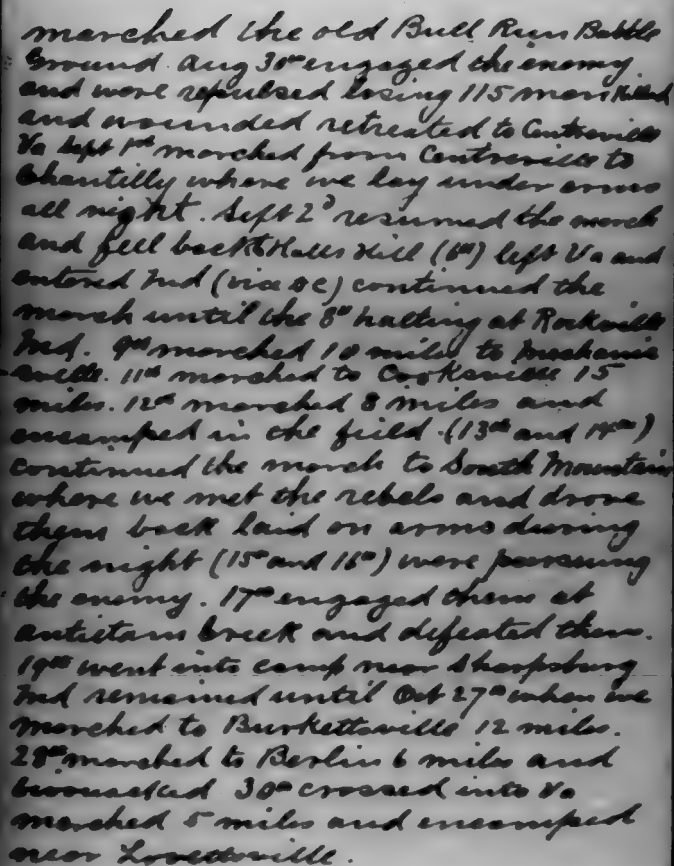 marched the old Bull Run Battle
Ground. Aug 30th engaged the enemy
and were repulsed losing 115 men killed
and wounded retreated to Centreville
Va Sept 1st marched from Centreville to
Chantilly where we lay under arms
all night. Sept 2d resumed the march
and fell back to Halls Hill (6th) left Va and
entered Md (via DC) continued the
march until the 8th halting at Rockville
Md. 9th marched 10 miles to Mechanic
sville. 11th marched to Cooksville 15
miles. 12th marched 8 miles and
encamped in the field. (13th and 14th)
continued the march to South Mountain
where we met the rebels and drove
them back laid on arms during
the night (15th and 16th) were pursuing
the enemy. 17th engaged them at
Antietam Creek and defeated them.
19th went into camp near Sharpsburg
Md remained until Oct 27th when we
marched to Burkettsville 12 miles.
28th marched to Berlin 6 miles and
bivouacked 30th crossed into Va
marched 5 miles and encamped
near Lovettsville.